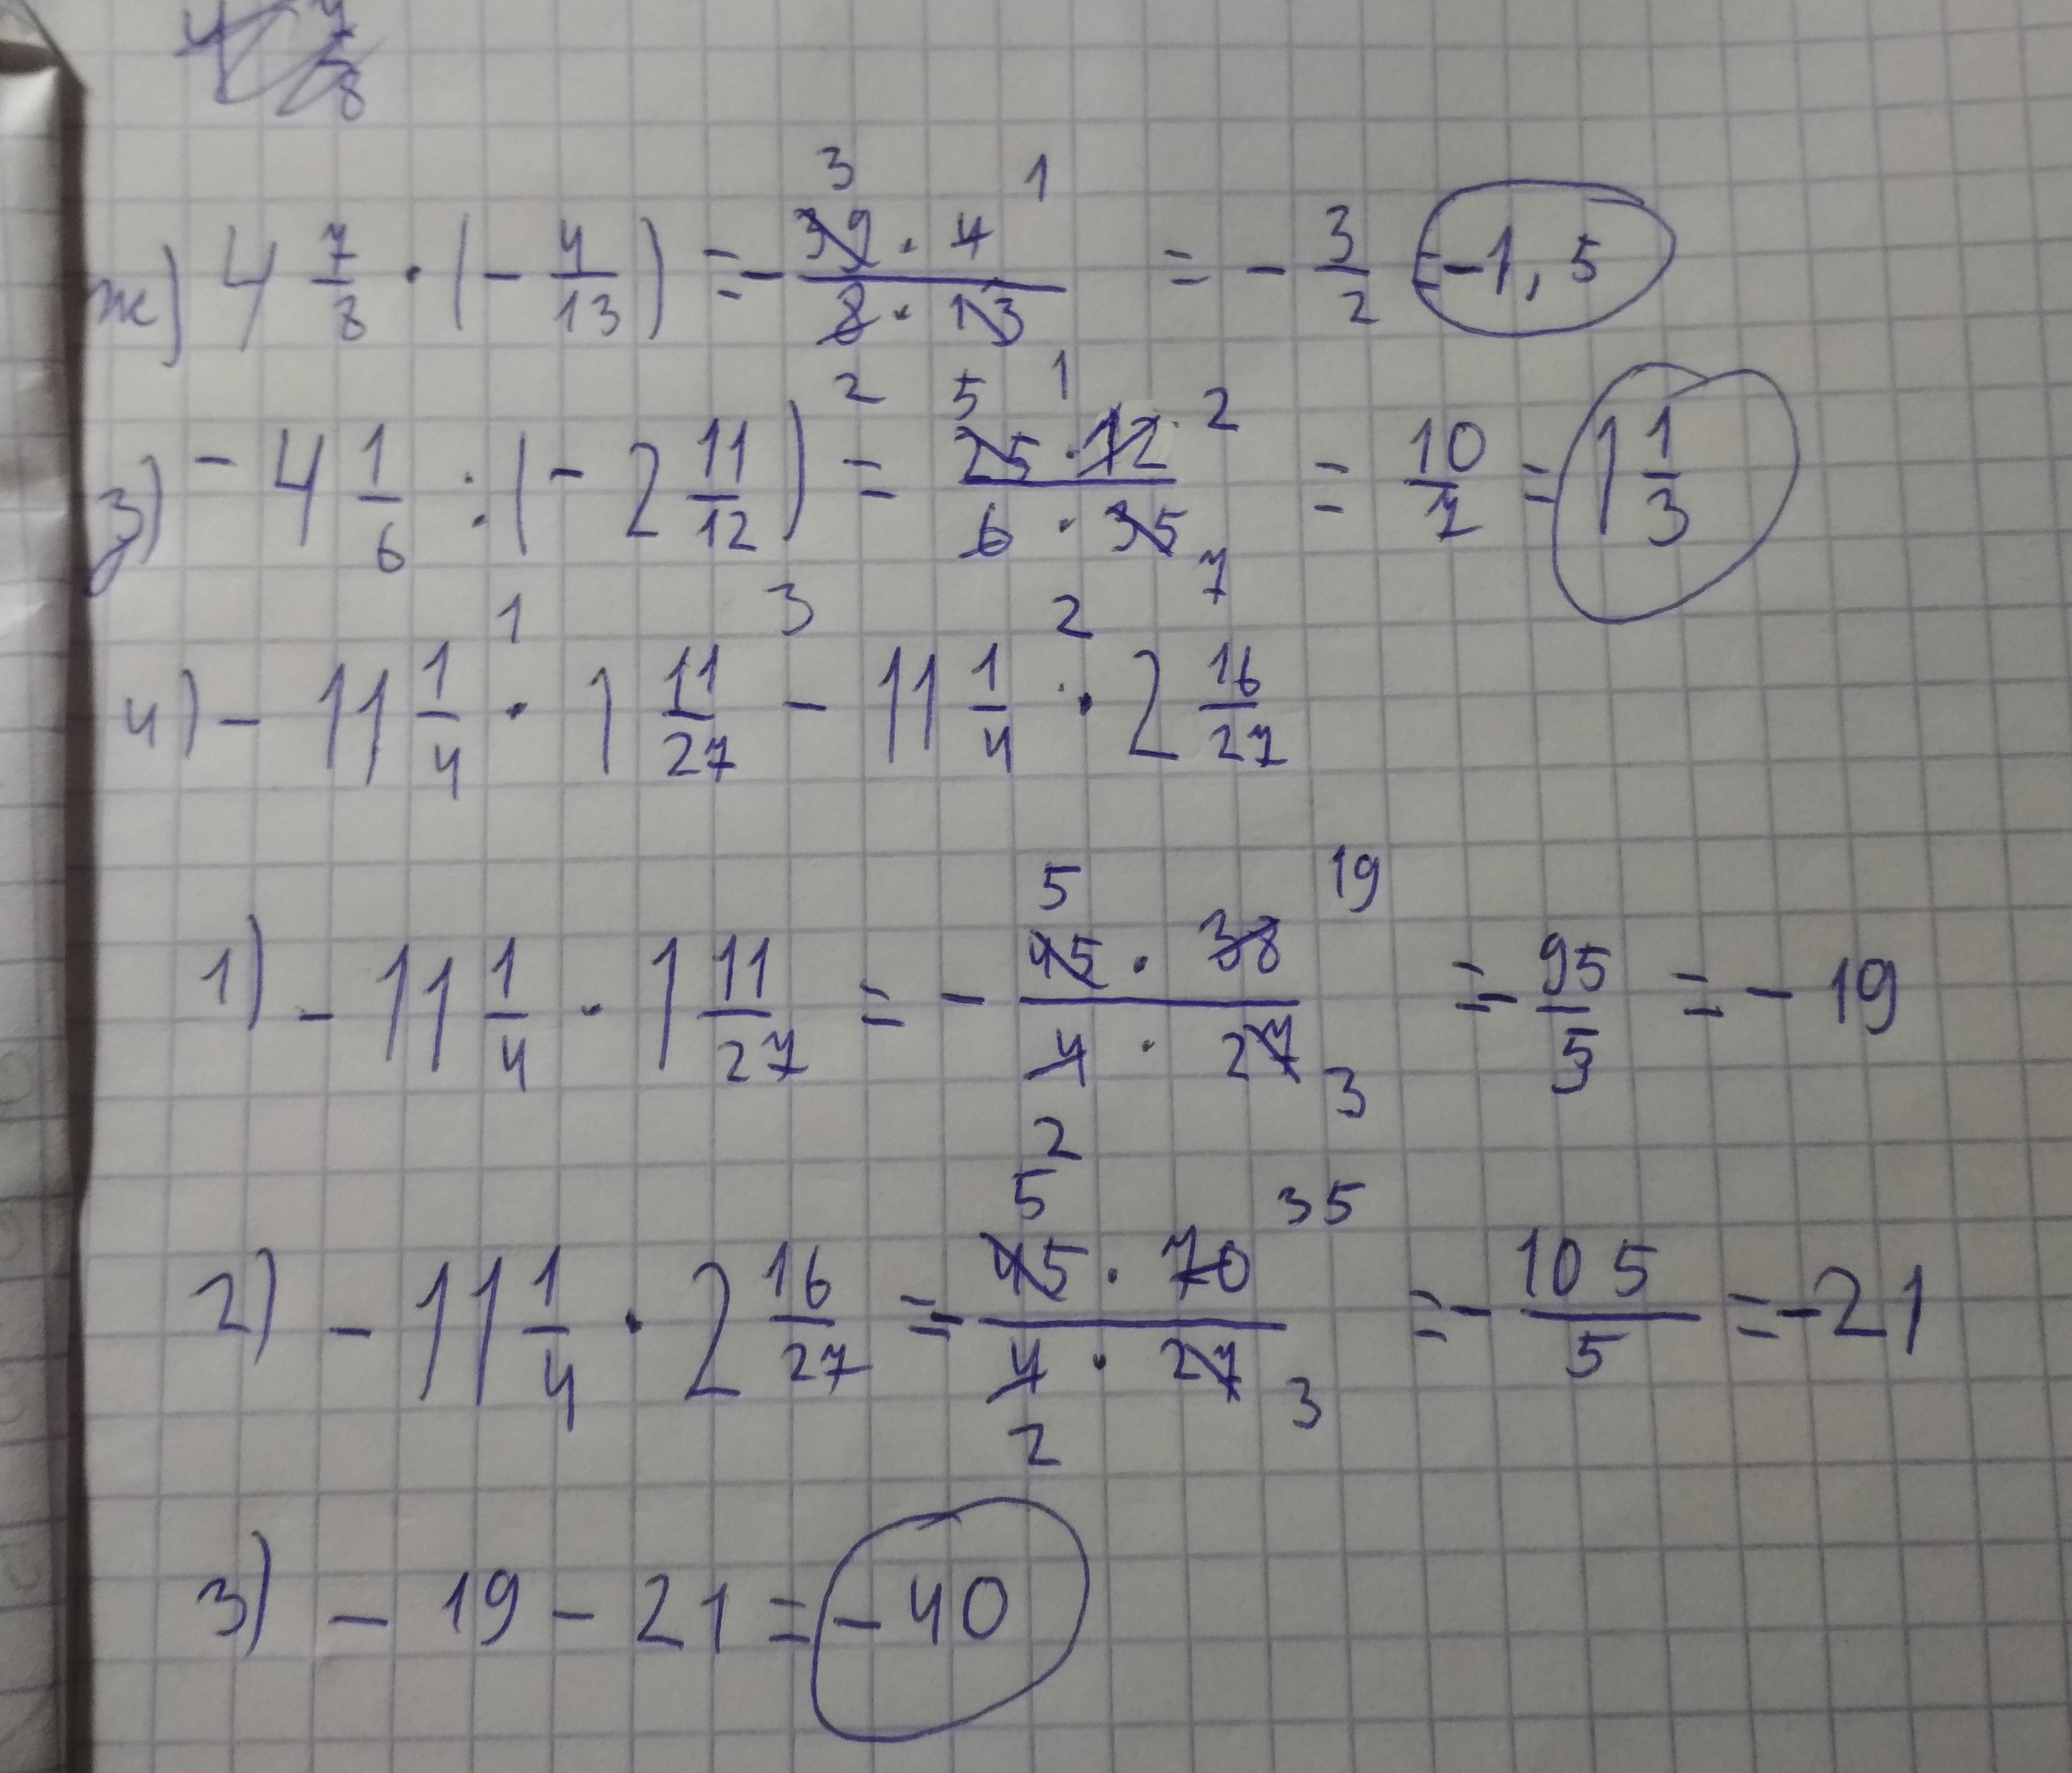 4 7/8
ж) 4 7/8 · (- 4/13) = - (39 · 4)/(8 · 13) = - 3/2 = -1,5
з) - 4 1/6 : (- 2 11/12) = (25 · 12)/(6 · 35) = 10/7 = 1 1/3
и) - 11 1/4 · 1 11/27 - 11 1/4 · 2 16/27
1) - 11 1/4 · 1 11/27 = - (45 · 38)/(4 · 27) = - 95/5 = - 19
2) - 11 1/4 · 2 16/27 = - (45 · 70)/(4 · 27) = - 105/5 = -21
3) - 19 - 21 = - 40